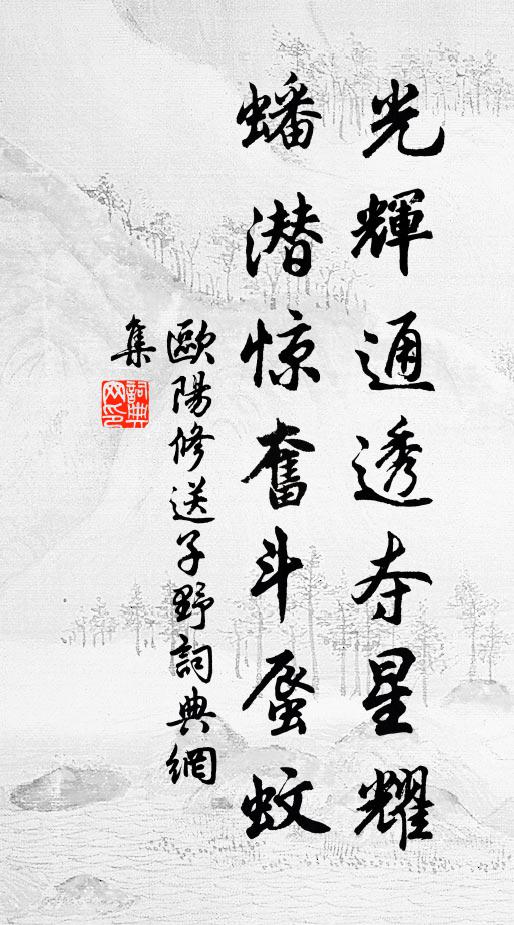 光輝通透夺星耀
蟠潜惊奮斗蜃蚊
歐陽修送子野詞典網
集
詞典
网印